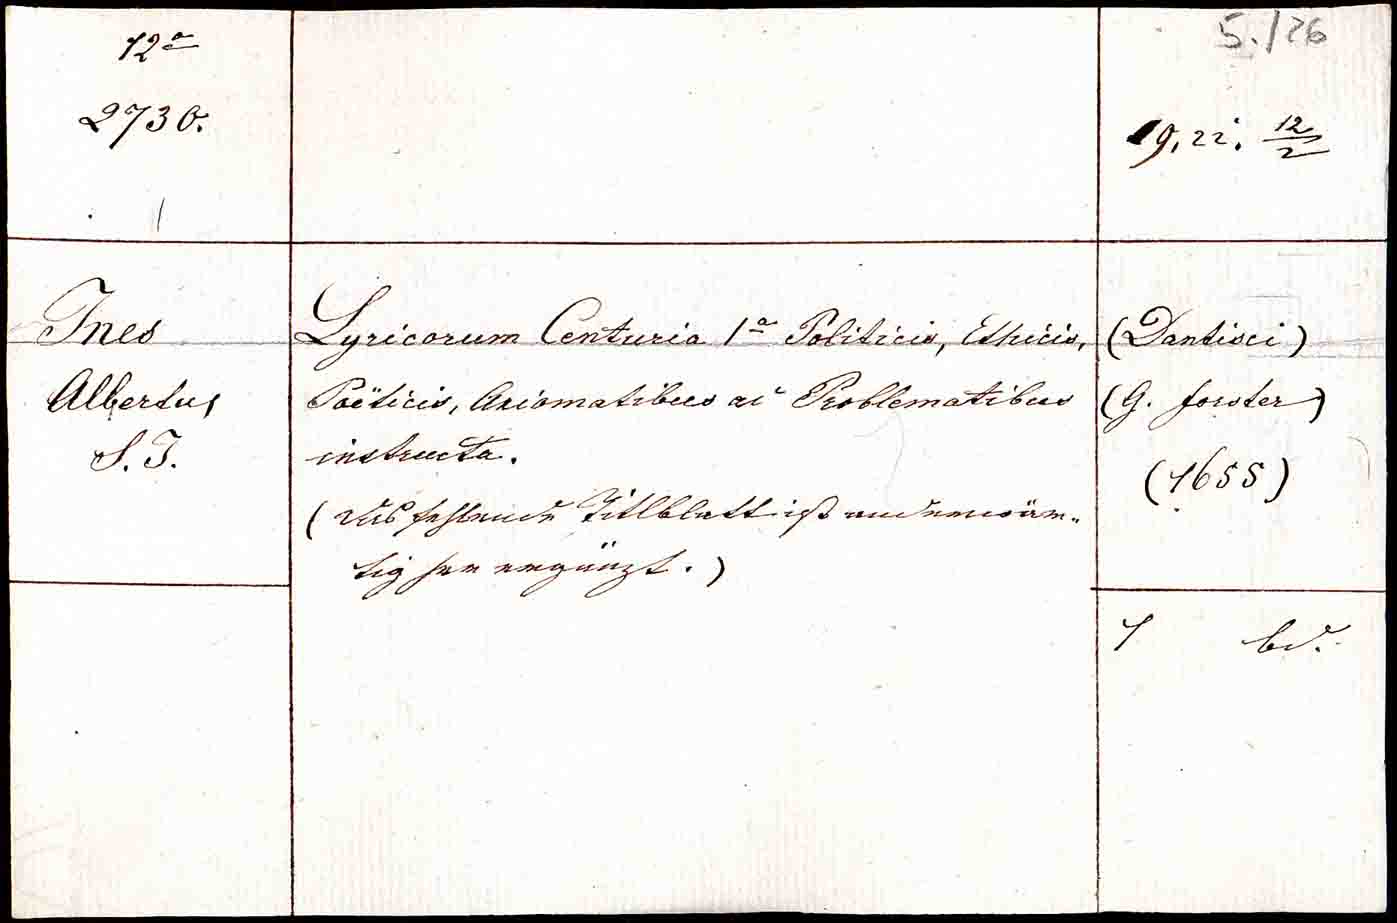 12°
2730.
5./26
19,22. 12/2
Ines
Albertus
S. J.
Lyricorum Centuria 1a Politicis, Ethicis,
Poëticis, Axiomatibus ac Problematibus
instructa.
(das fehlende Titlblatt ist anderwär-
tig her ergänzt.)
(Dantisci)
(G. forster)
(1655)
1 bd.